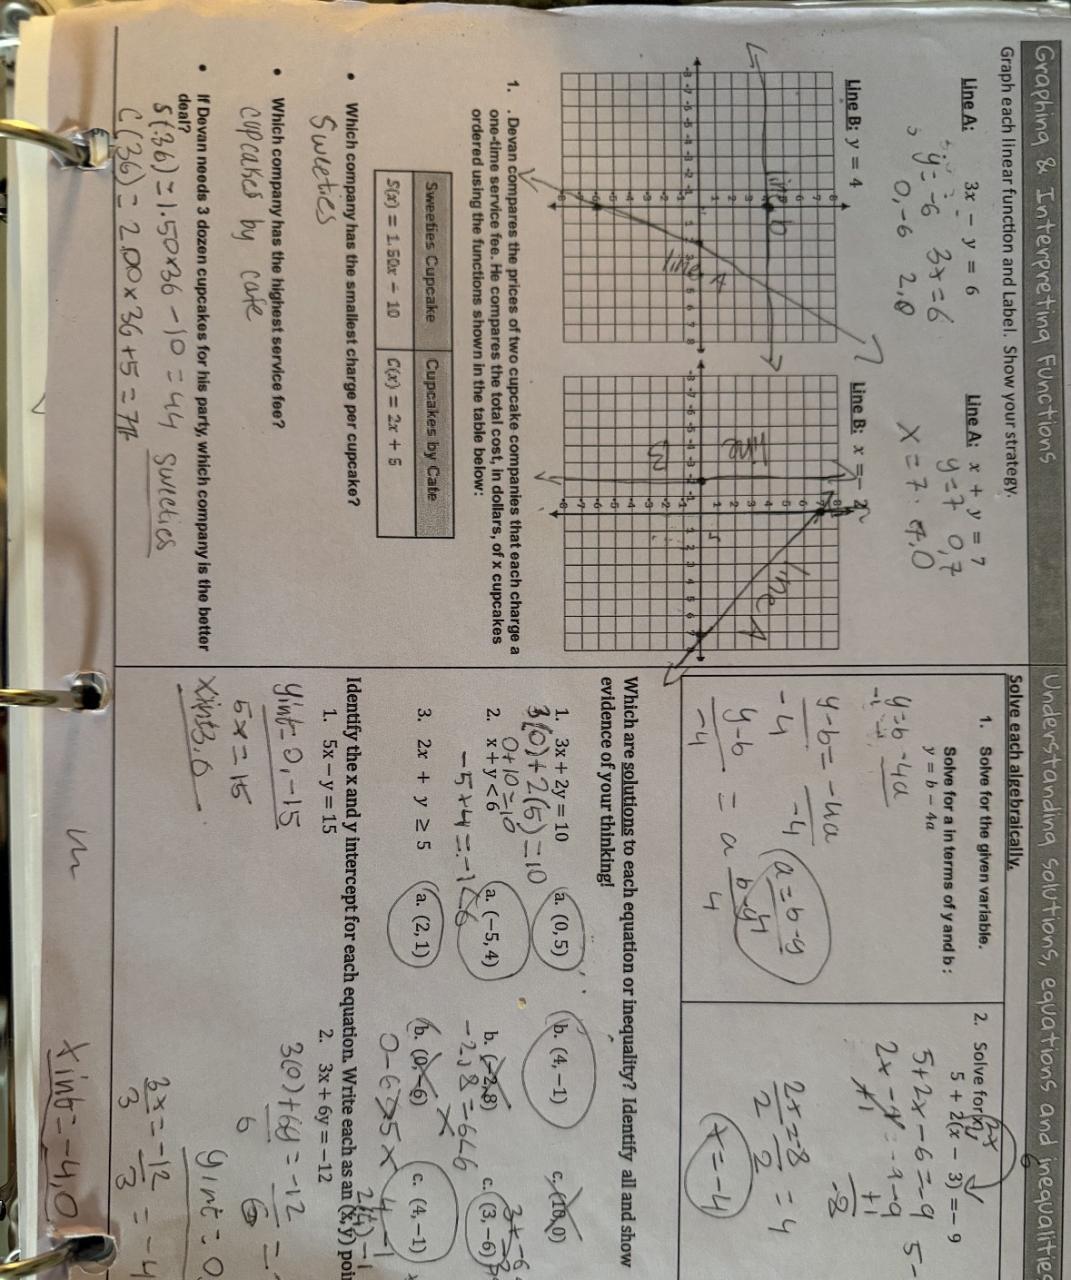 Graphing & Interpreting Functions
Graph each linear function and Label. Show your strategy.
Line A: 3x − y = 6
y = -6 3x = 6
0, -6 2, 0
Line B: y = 4
Line A: x + y = 7
y = 7 0, 7
x = 7 7, 0
Line B: x = − 2
line b
line A
line B
line A
1. . Devan compares the prices of two cupcake companies that each charge a
one-time service fee. He compares the total cost, in dollars, of x cupcakes
ordered using the functions shown in the table below:
Sweeties Cupcake Cupcakes by Cate
S(x) = 1.50x − 10 C(x) = 2x + 5
• Which company has the smallest charge per cupcake?
Sweeties
• Which company has the highest service fee?
cupcakes by cate
• If Devan needs 3 dozen cupcakes for his party, which company is the better
deal?
S(36) = 1.50x36 - 10 = 44 sweeties
C(36) = 2.00 x 36 + 5 = 77
Understanding solutions, equations and inequalitie
Solve each algebraically.
1. Solve for the given variable.
Solve for a in terms of y and b :
y = b − 4a
y = b - 4a
y - b = -4a
-4 -4
y - b = a
-4
a = b - y
4
2. Solve for x
5 + 2(x − 3) = − 9
5 + 2x - 6 = -9
2x - 1 = -9
+1 +1
-8
2x = -8
2 2
x = -4
Which are solutions to each equation or inequality? Identify all and show
evidence of your thinking!
1. 3x + 2y = 10 a. (0, 5) b. (4, −1) c. (10, 0)
3(0) + 2(5) = 10
0 + 10 = 10
2. x + y < 6 a. (−5, 4) b. (−2, 8) c. (3, −6)
-5 + 4 = -1 < 6
3. 2x + y ≥ 5 a. (2, 1) b. (0, −6) c. (4, −1)
Identify the x and y intercept for each equation. Write each as an (x, y) poi
1. 5x − y = 15
yint = 0, -15
5x = 15
xint 3, 0
2. 3x + 6y = −12
3(0) + 6y = -12
6 6
yint = 0
3x = -12 = -4
3 3
xint = -4, 0